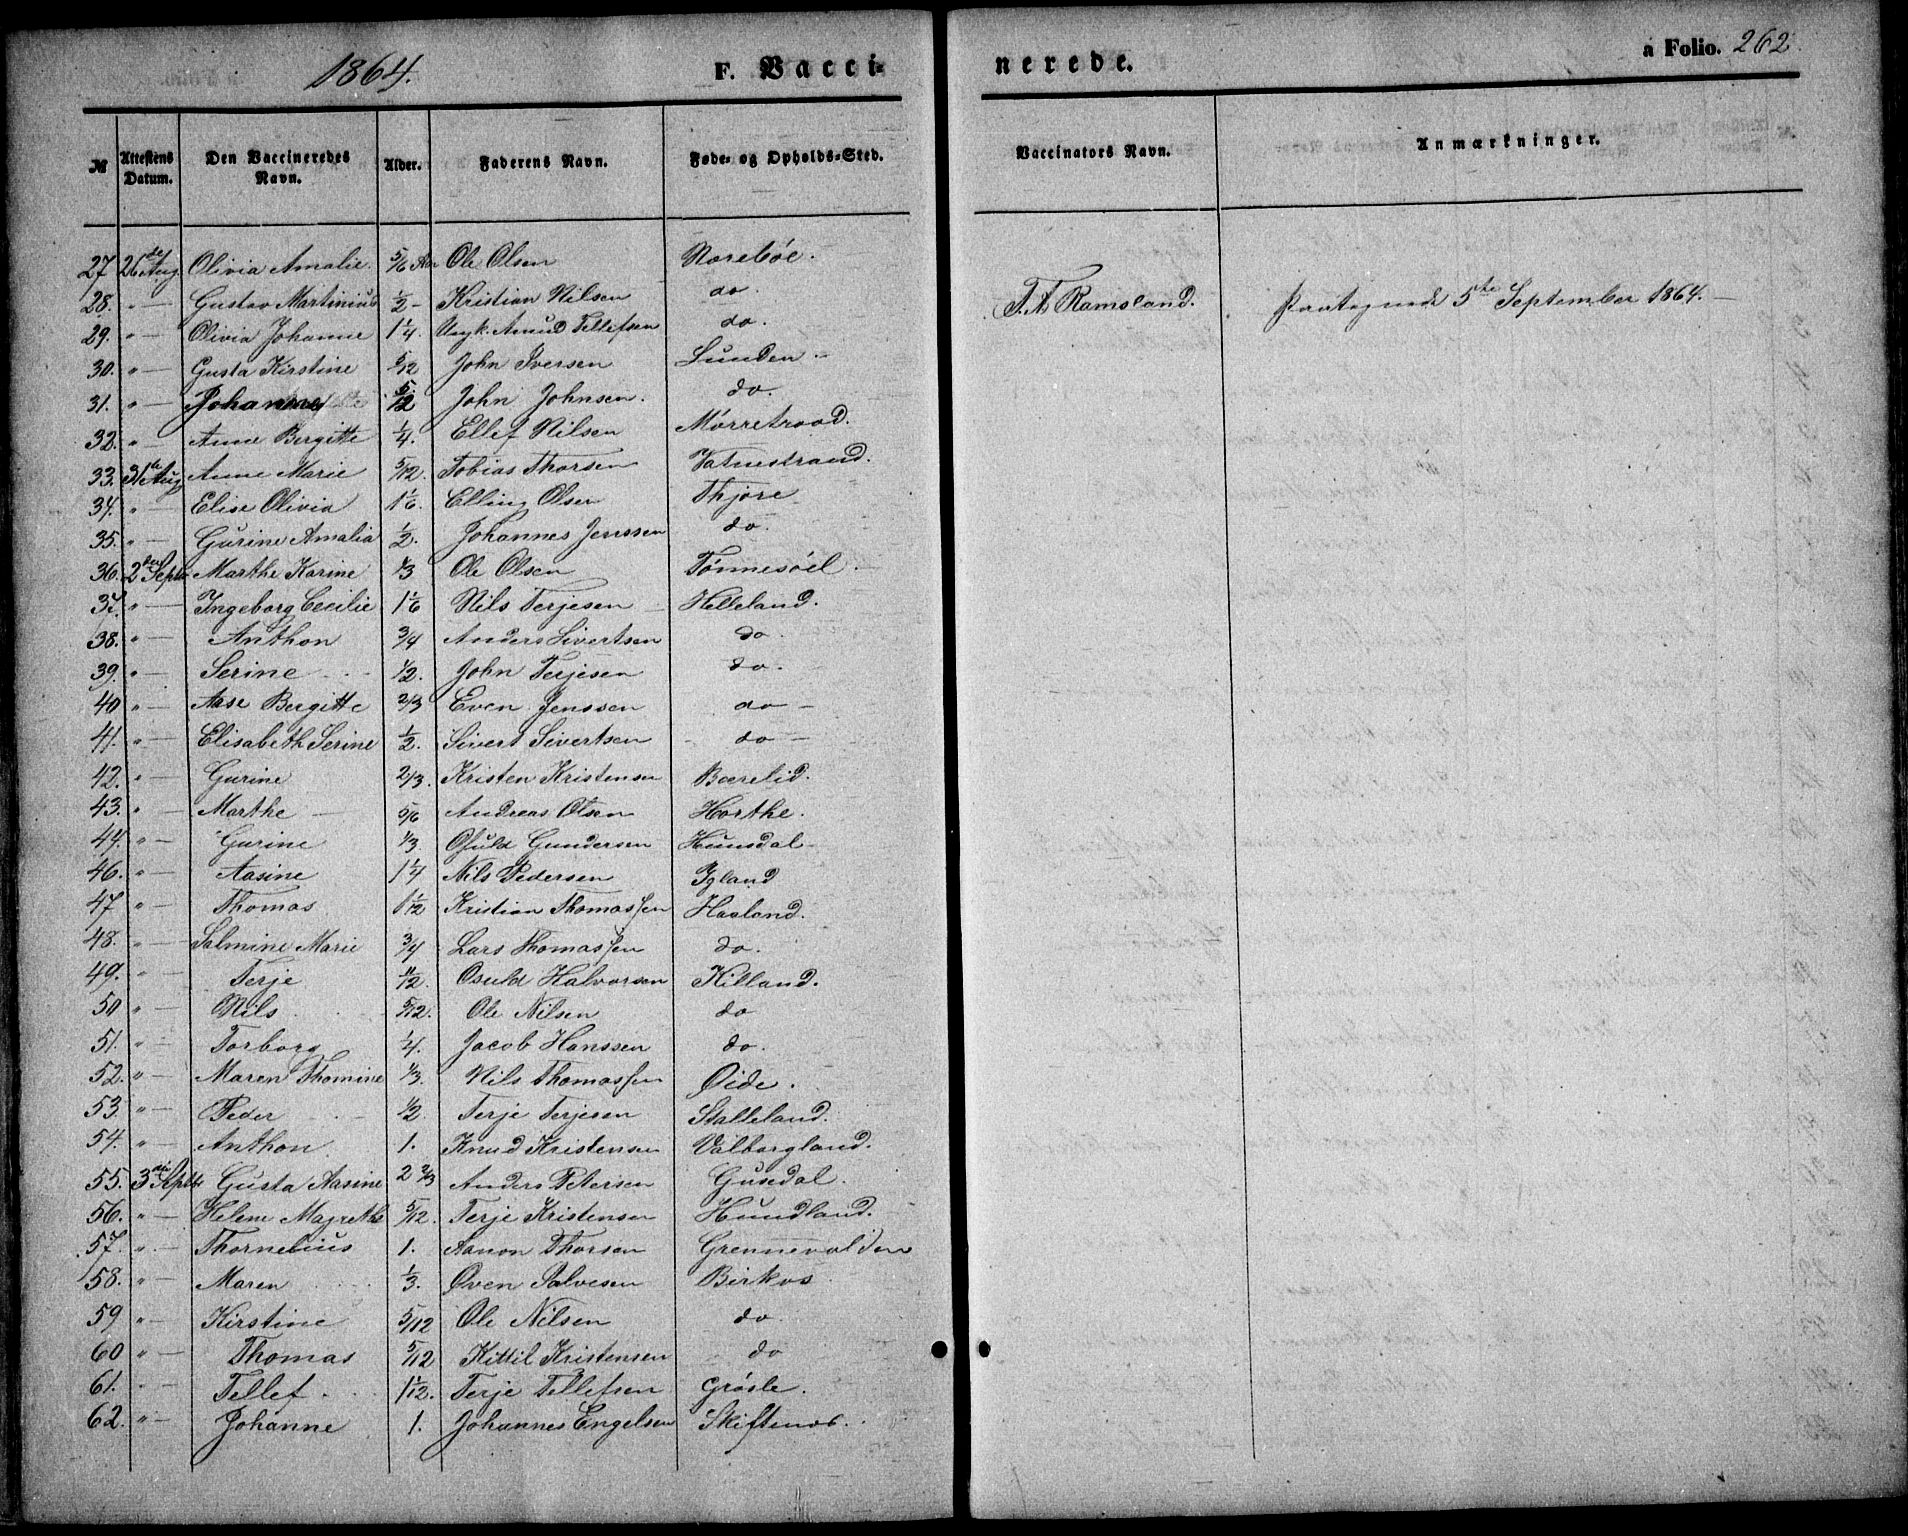 1864. F. Vacci- nerede. a Folio. 262.
№ Attestens Datum. Den Vaccineredes Navn. Alder. Faderens Navn. Føde- og Opholds-Sted. Vaccinators Navn. Anmærkninger.
27 26de Aug. Olivia Amalie. 5/6 Aar Ole Olsen Narebøe.
28. " — Gustav Martinius 1/2 - Kristian Nilsen do. T. A. Ramsland. foretagne d 5te September 1864. —
29. " — Olivia Johanne 1 1/4. Ungk. Amund Tellefsen do.
30. " — Gusta Kirstine 5/12 John Iversen Lunden -
31. " — Johanne 5/12 John Johnsen. do.
32. " Anne Bergitte 1/4. Ellef Nilsen Mørretraad.
33. 31te Aug Anne Marie 5/12. Tobias Thorsen Vatnestrand.
34. " — Elise Olivia 1 1/6. Elling Olsen Thjøre
35. " — Gurine Amalia 1/2. Johannes Jenssen do.
36. 2den Septb Marthe Karine 1/3 Ole Olsen Tønnesøel
37. " — Ingeborg Cecilie 1 1/6 Nils Terjesen Helleland.
38. " — Anthon 3/4 Anders Sivertsen do.
39. " — Serine 1/2. John Terjesen do.
40 " — Aase Bergitte 2/3 Even Jenssen do —
41. " — Elisabeth Serine 1/2. Sivert Sivertsen do —
42. " — Gurine 2/3. Kristen Kristensen Bærelid.
43. " — Marthe — 5/6 Andreas Olsen Horthe.
44. " — Gurine 1/3. Osuld Gundersen Hunsdal
46. " — Aasine 1 1/4 Nils Pedersen Igland
47 " — Thomas 1 1/12 Kristian Thomassen Haaland.
48. " — Salmine Marie 3/4 Lars Thomassen do.
49. " — Terje 11/12. Osuld Halvorsen Killand.
50 " — Nils 5/12. Ole Nilsen do
51. " — Torborg 1/4. Jacob Hanssen do.
52. " — Maren Thomine 1/3. Nils Thomassen Øide.
53. " — Peder 1/2 Terje Terjesen Stalleland.
54. " — Anthon. 1. Knud Kristensen Valborgland.
55. 3die Septb Gusta Aasine 2 2/3 Anders Petersen Gusedal.
56. " — Helene Magrethe 5/12. Terje Kristensen Hundland.
57. " — Thornelius 1. Aanon Thorsen Grennevolden
58. " — Maren 1/3. Oven Salvesen Birkos
59 " — Kirstine 5/12 Ole Nilsen do.
60 " — Thomas 5/12 Kittil Kristensen do
61. " — Tellef. 1 1/12. Terje Tellefsen Grøsle.
62. " — Johanne 1. Johannes Engelsen Skiftenes.